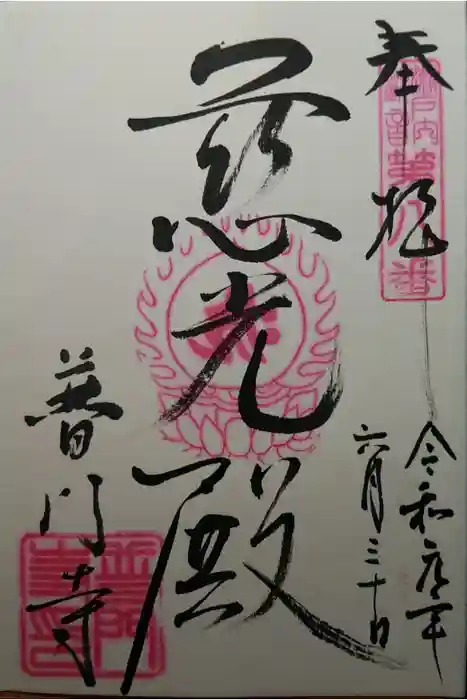 奉拝
令和元年
六月三十日
慈光殿
普門寺